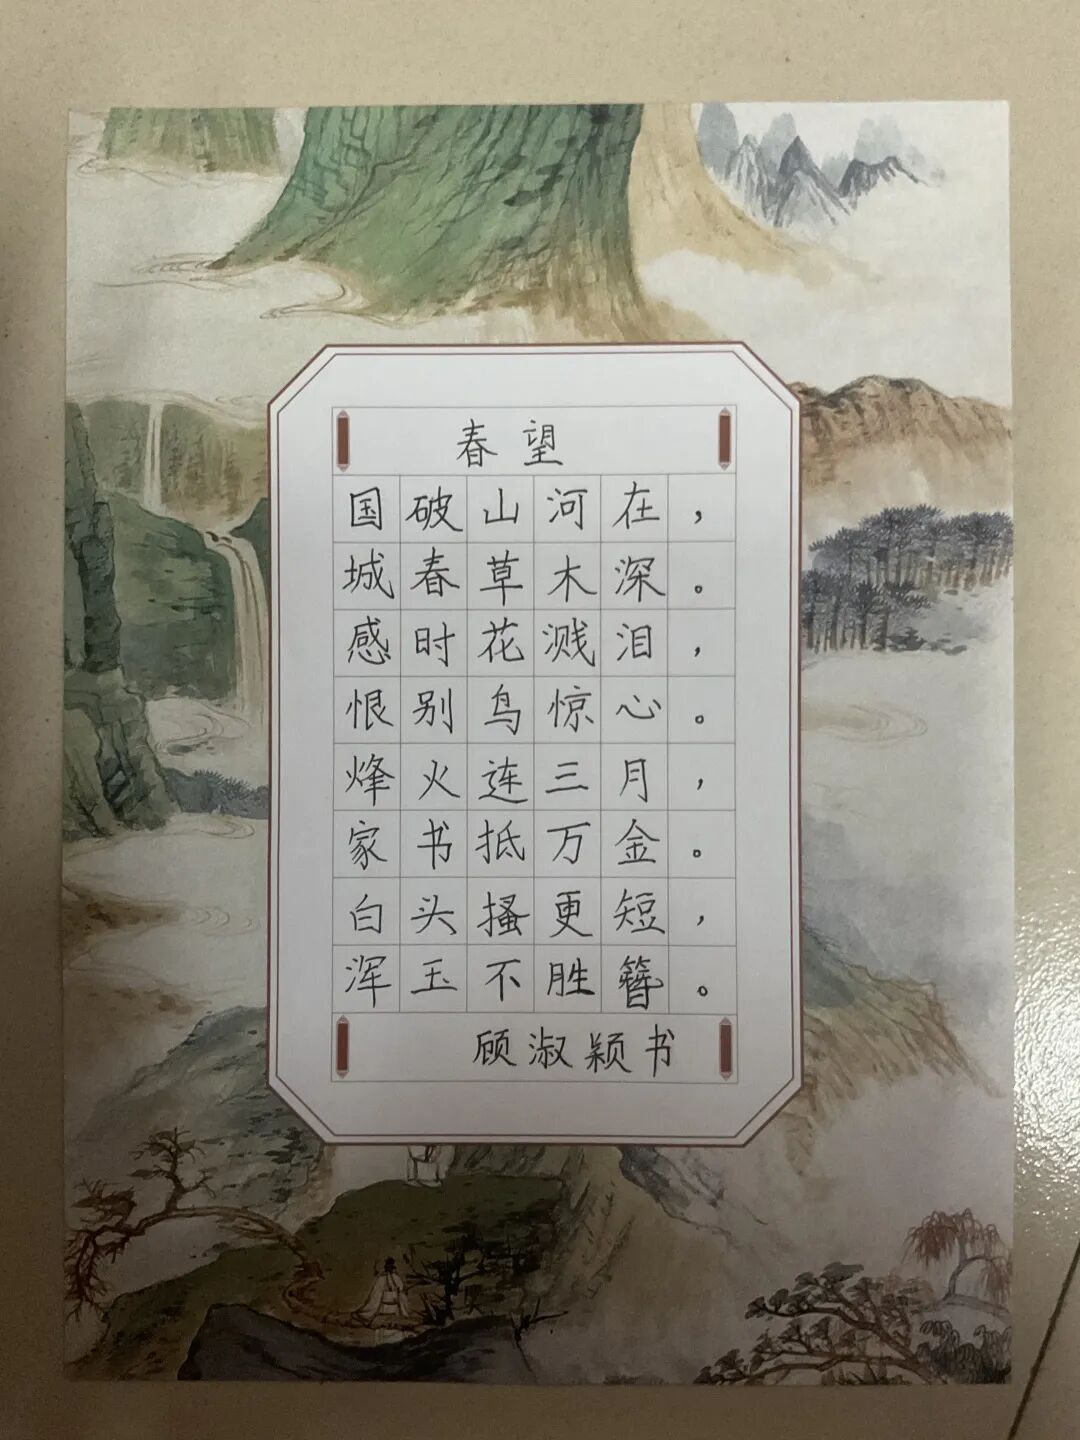 春望
国破山河在，
城春草木深。
感时花溅泪，
恨别鸟惊心。
烽火连三月，
家书抵万金。
白头搔更短，
浑玉不胜簪。
顾淑颖书